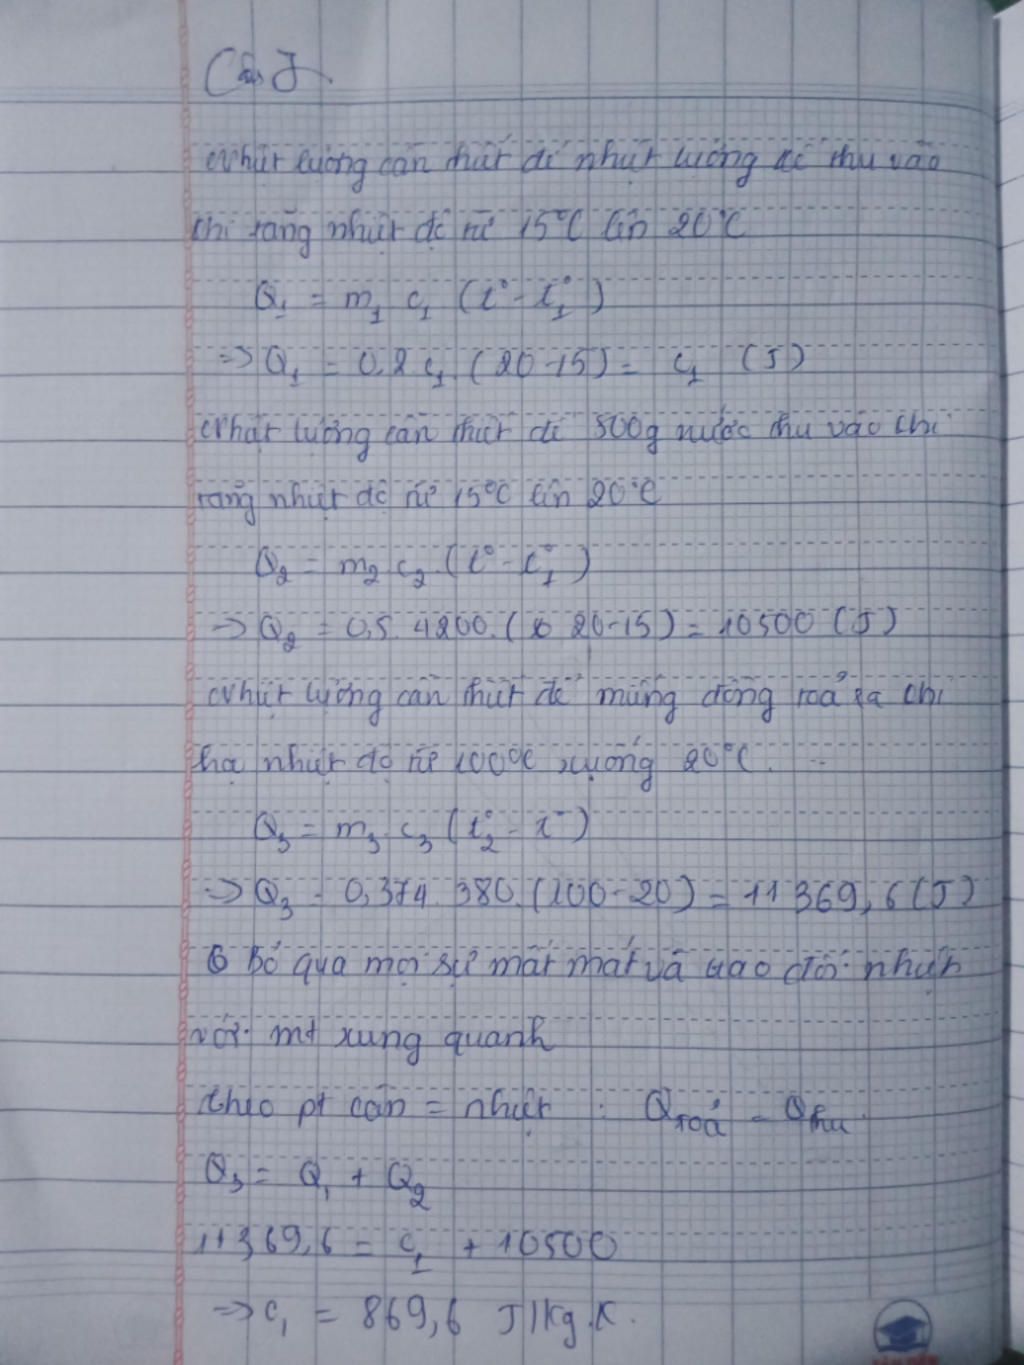 Câu 5
Nhiệt lượng cần thiết để nhiệt lượng kế thu vào
khi tăng nhiệt độ từ 15°C lên 20°C
Q₁ = m₁ c₁ (t° - t°₁)
=> Q₁ = 0,2 c₁. (20-15) = c₁ (J)
Nhiệt lượng cần thiết để 500g nước thu vào khi
tăng nhiệt độ từ 15°C lên 20°C
Q₂ = m₂ c₂ (t° - t°₁)
=> Q₂ = 0,5. 4200. (20-15) = 10500 (J)
Nhiệt lượng cần thiết để miếng đồng toả ra khi
hạ nhiệt độ từ 100°C xuống 20°C.
Q₃ = m₃ c₃ (t°₂ - t°)
=> Q₃ = 0,374. 380. (100-20) = 11369,6 (J)
Bỏ qua mọi sự mất mát và trao đổi nhiệt
với mt xung quanh
theo pt cân = nhiệt : Qtoả = Qthu
Q₃ = Q₁ + Q₂
11369,6 = c₁ + 10500
=> c₁ = 869,6 J/kg.K.